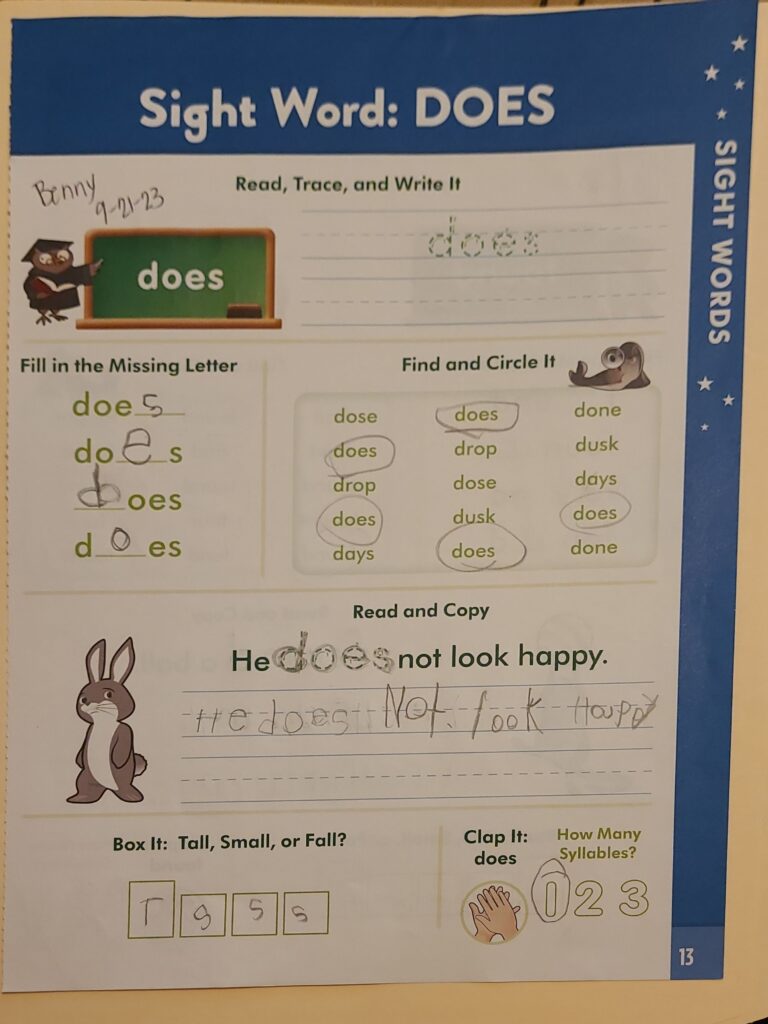 Sight Word: DOES
SIGHT WORDS
Benny
9-21-23
Read, Trace, and Write It
does
does
Fill in the Missing Letter
does
does
does
does
Find and Circle It
dose does done
does drop dusk
drop dose days
does dusk does
days does done
Read and Copy
He does not look happy.
He does Not. look Happy
Box It: Tall, Small, or Fall?
T s s s
Clap It:
does
How Many
Syllables?
1 2 3
13